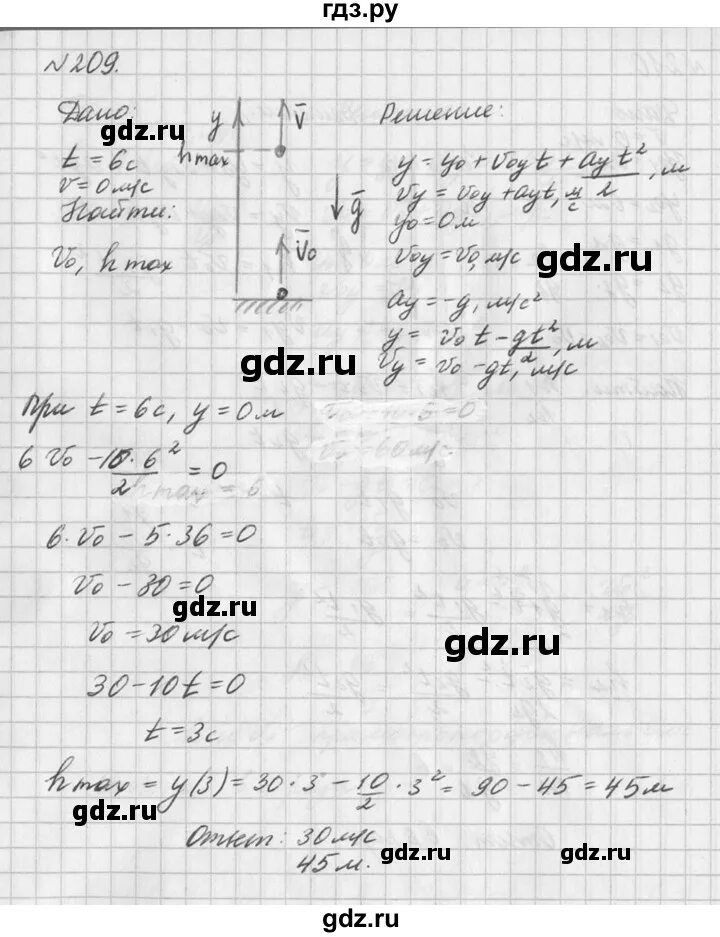 гдз.ру
№209.
Дано:
t = 6с
v = 0 м/с
Найти:
v₀, h max
y
h max
v̄
ḡ
v̄₀
Решение:
y = y₀ + v₀y t + ay t²/2, м
vy = v₀y + ay t, м/с
y₀ = 0 м
v₀y = v₀, м/с
ay = -g, м/с²
y = v₀ t - gt²/2, м
vy = v₀ - gt, м/с
При t = 6с, y = 0 м
6 v₀ - 10·6²/2 = 0
6·v₀ - 5·36 = 0
v₀ - 30 = 0
v₀ = 30 м/с
30 - 10t = 0
t = 3с
h max = y(3) = 30·3 - 10/2·3² = 90 - 45 = 45 м
Ответ: 30 м/с
45 м.
gdz.ru
gdz.ru
gdz.ru
gdz.ru
gdz.ru
gdz.ru
gdz.ru
gdz.ru
gdz.ru
gdz.ru